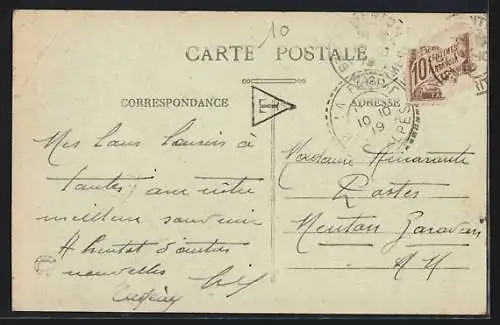 10
CARTE POSTALE
CORRESPONDANCE
ADRESSE
T
10 CENTIMES
LA
10 10
19
Mes bons baisers à
toutes avec notre
meilleur souvenir
A bientôt d'autres
nouvelles
Eugène
Madame Amarante
Postes
Menton Garavan
A M